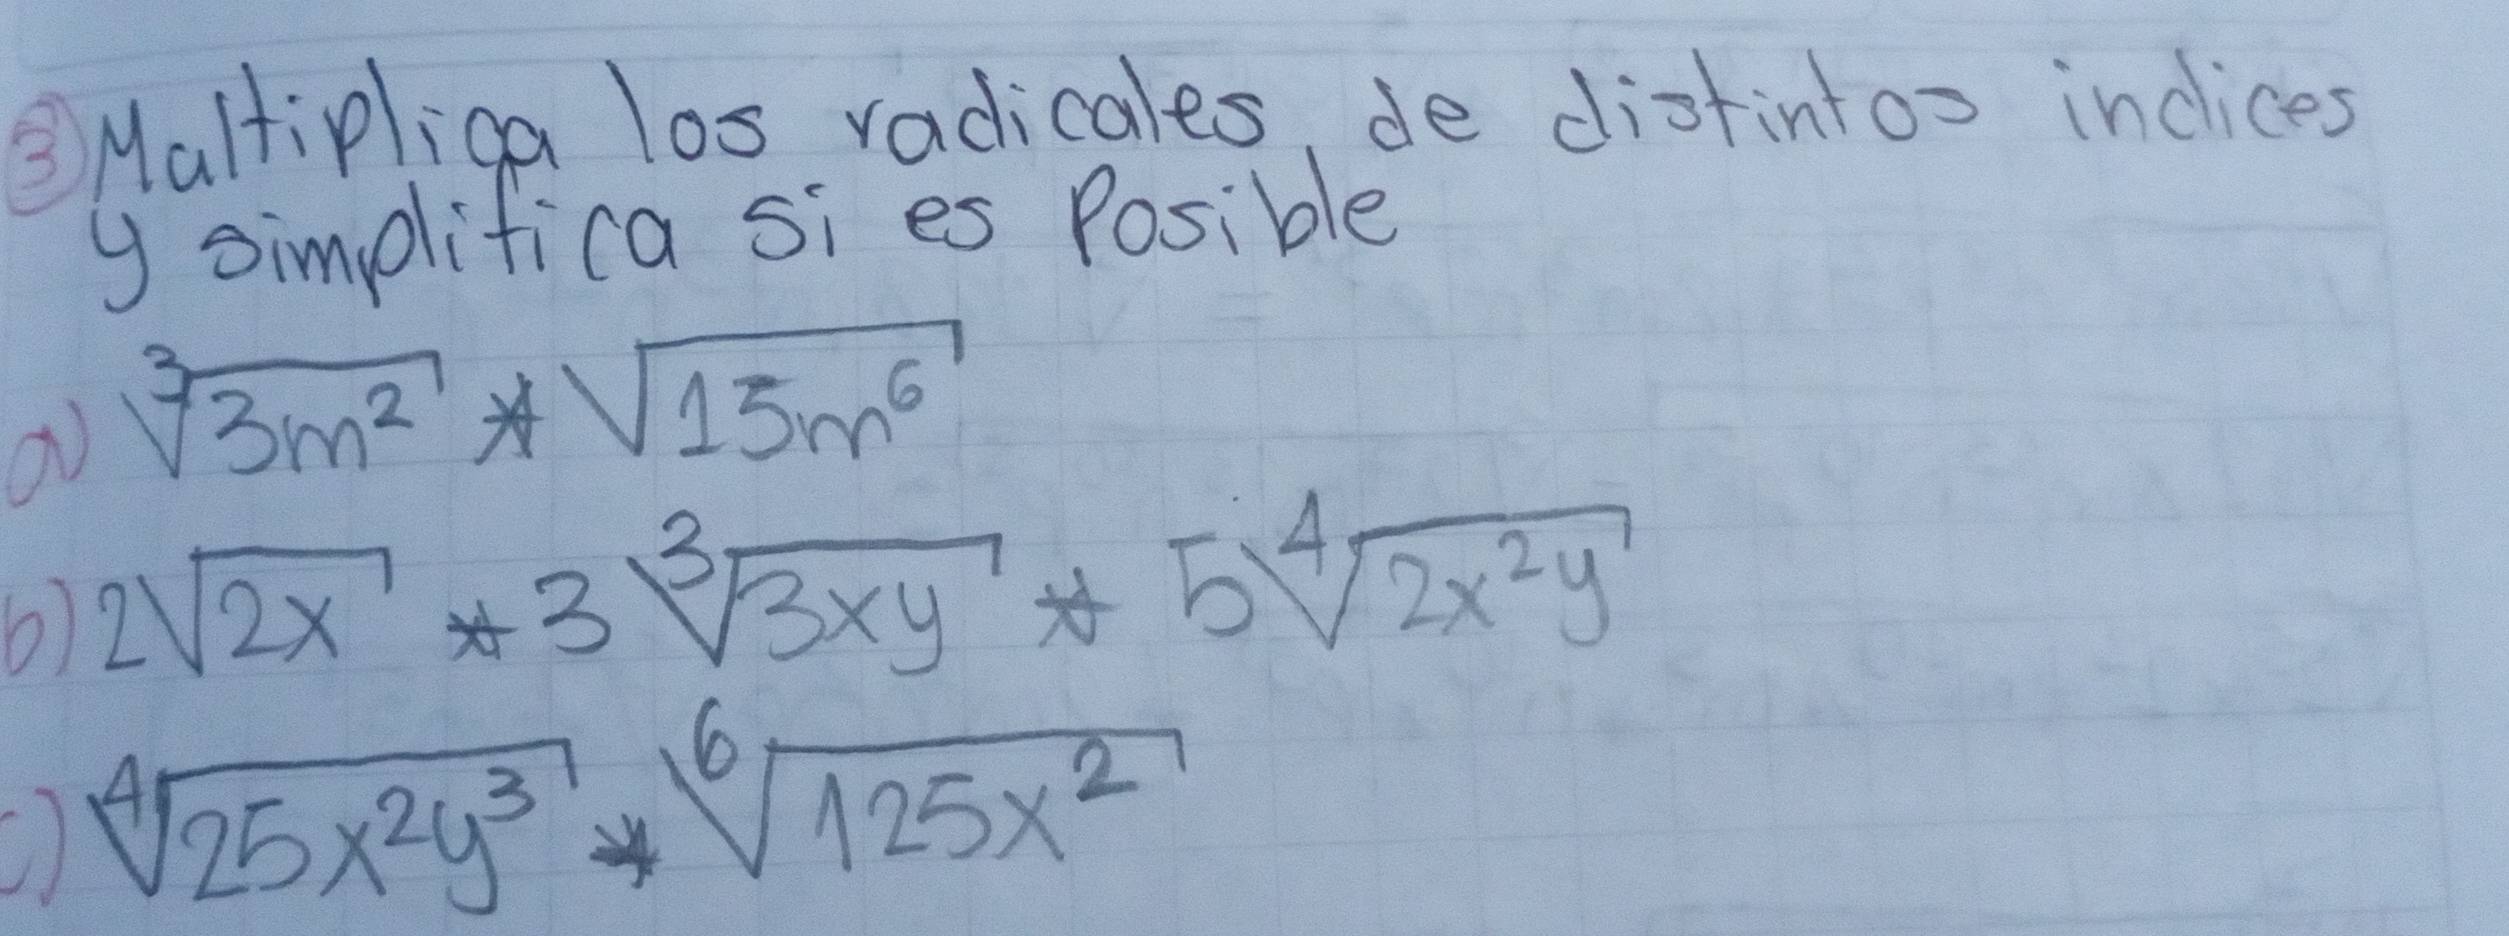 ③ Maltipliga los radicales, de distintos indices
y simplifica si es Posible
a) ∛3m² * √15m⁶
b) 2√2x * 3 ∛3xy * 5∜2x²y
c) ∜25x²y³ * ⁶√125x²